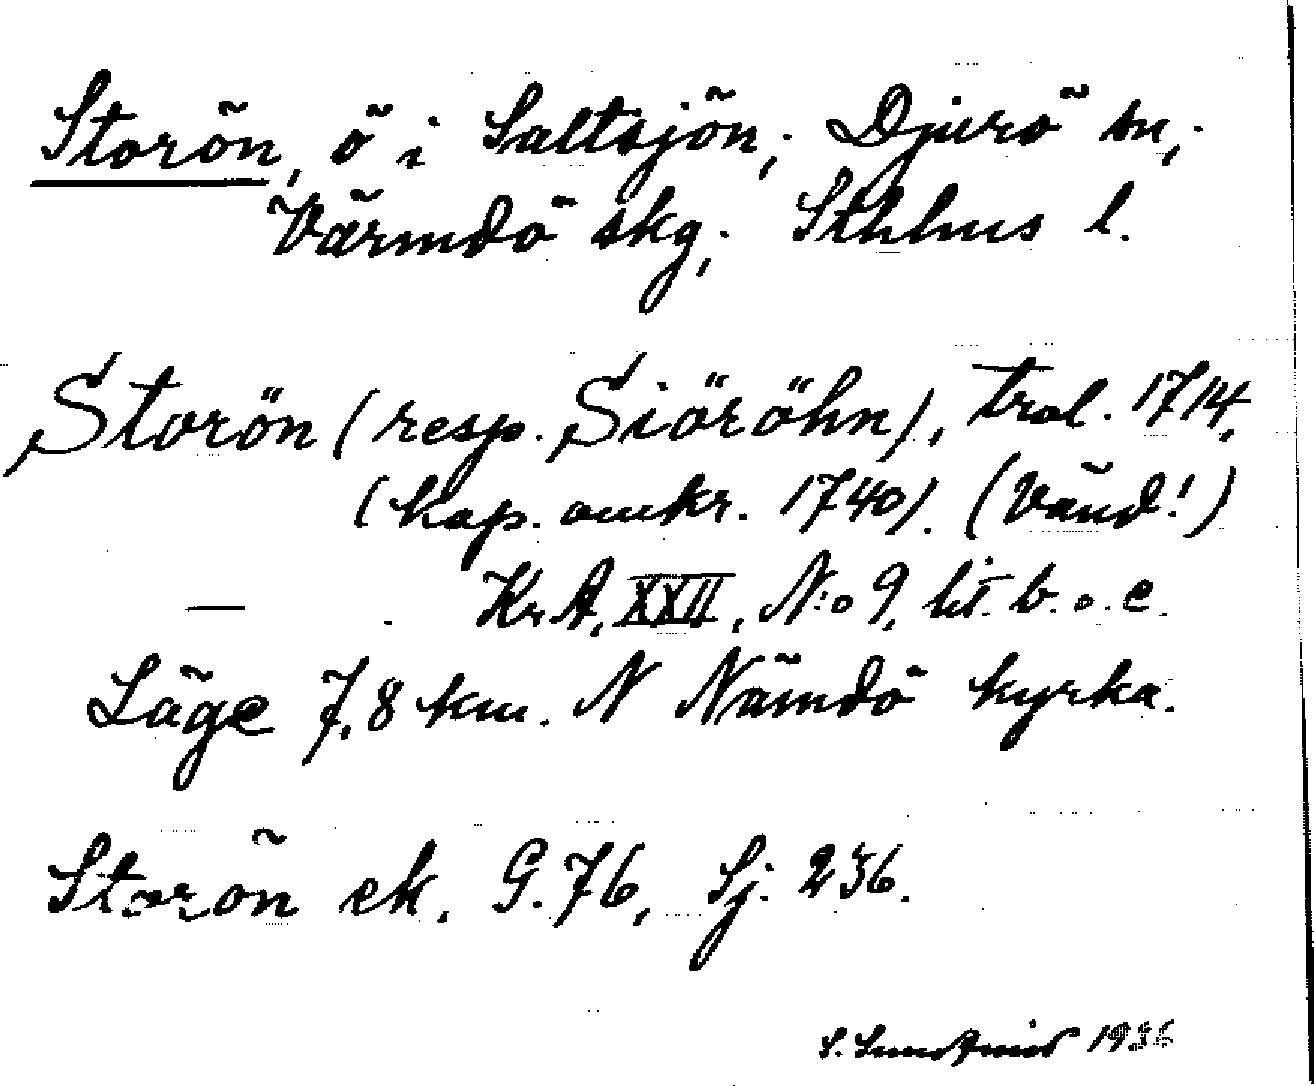 Storön, ö i Saltsjön; Djurö sn;
Värmdö skg; Sthlms l.
Storön (resp. Siöröhn), trol. 1714,
(kop. omkr. 1740). (Vänd!)
— Kr.A. XXII, N:o 9, lit. b. o. c.
Läge 7,8 km. N Nämdö kyrka.
Storön ek. G. 76, Sj. 236.
S. 1936